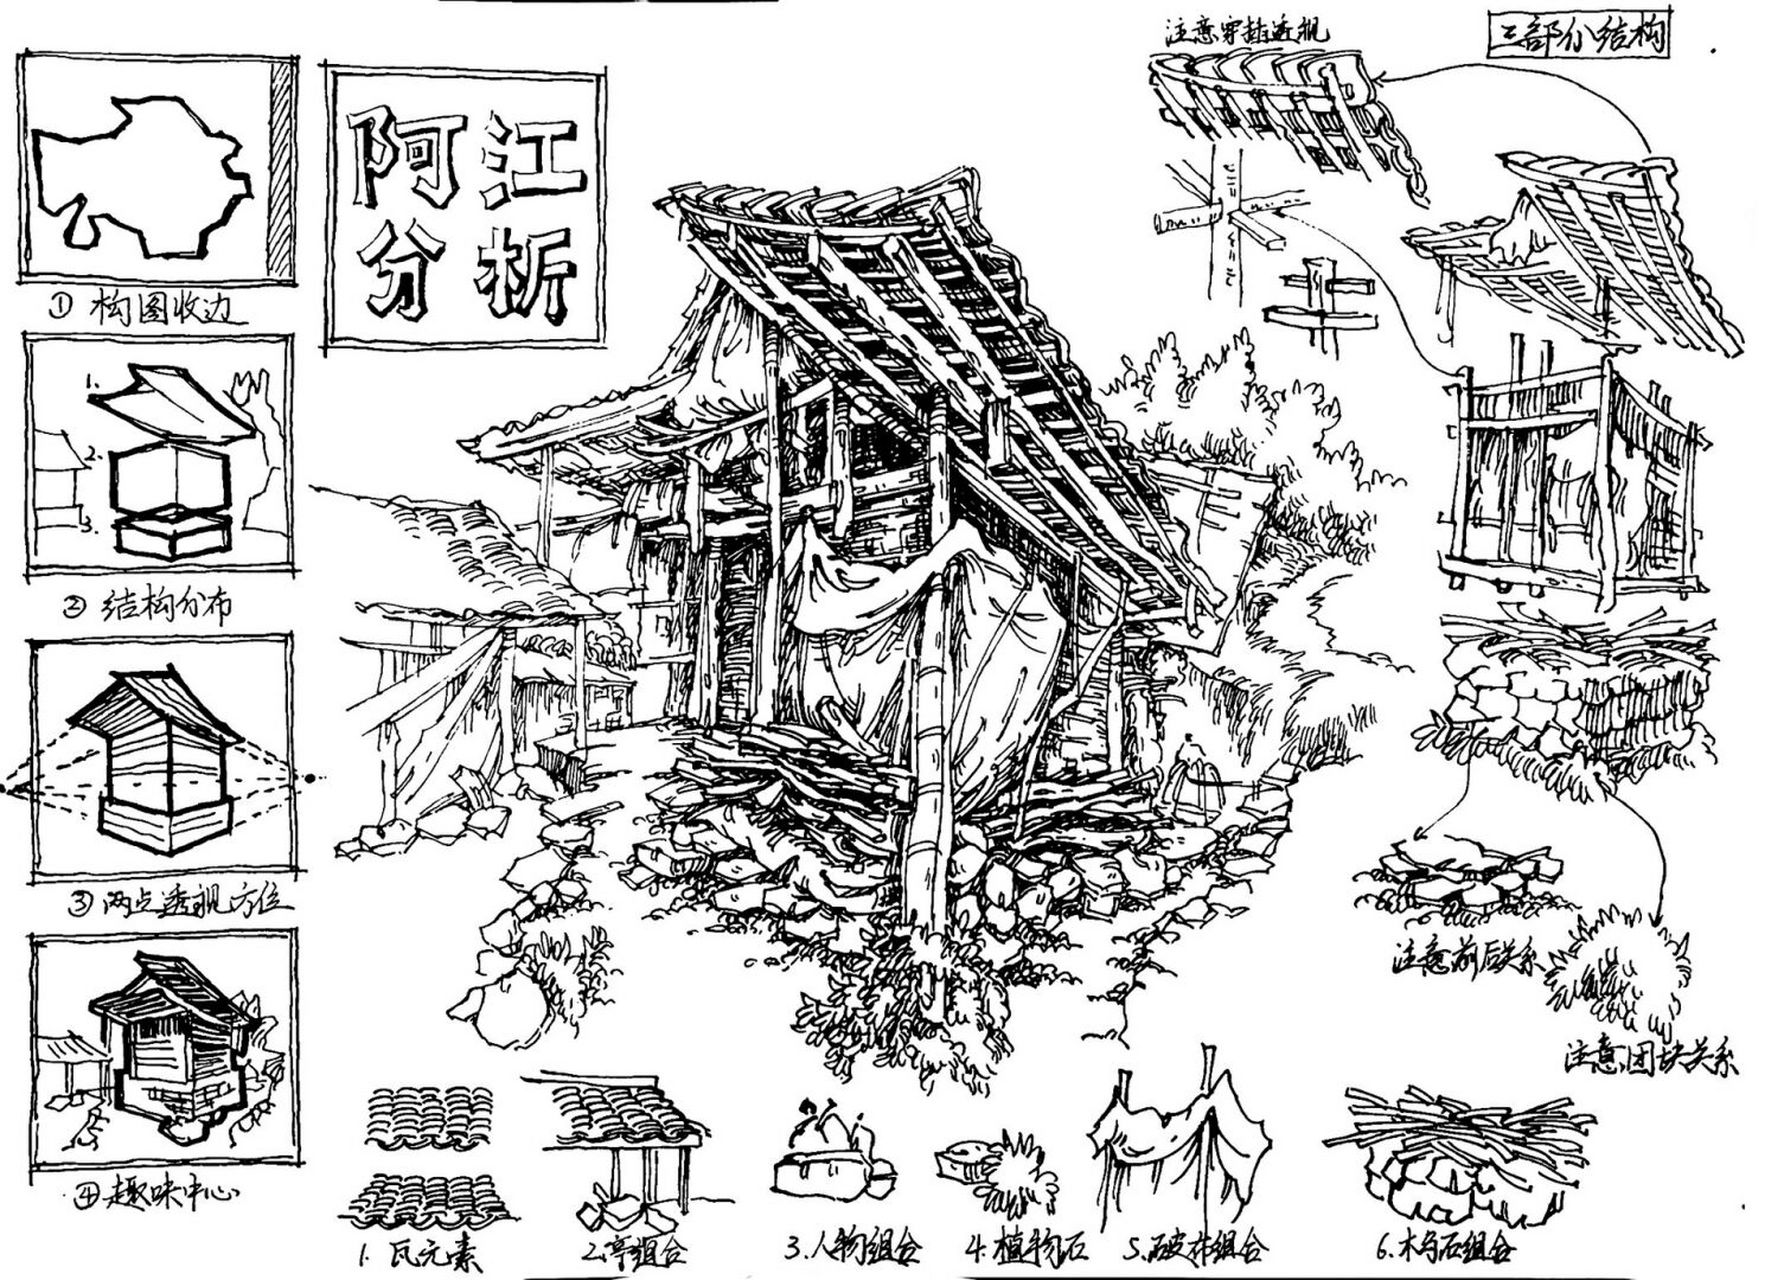 阿江
分析
① 构图收边
1.
2.
3.
② 结构分布
③ 两点透视方位
④ 趣味中心
注意穿插透视
三部分结构
注意前后关系
注意团块关系
1. 瓦元素
2. 亭组合
3. 人物组合
4. 植物石
5. 破布组合
6. 木与石组合